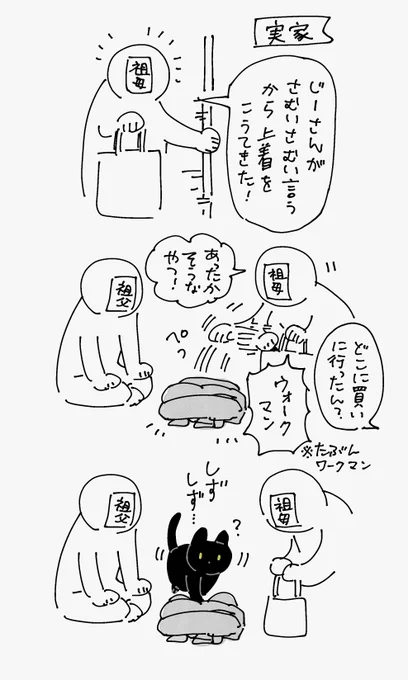 実家
祖母
じーさんが
さむいさむい言う
から上着を
こうてきた!
あったか
そうな
やつ!
祖母
祖父
ぺっ
どこに買い
に行ったん?
ウォーク
マン
※たぶん
ワークマン
祖父
しず
しず…
?
祖母